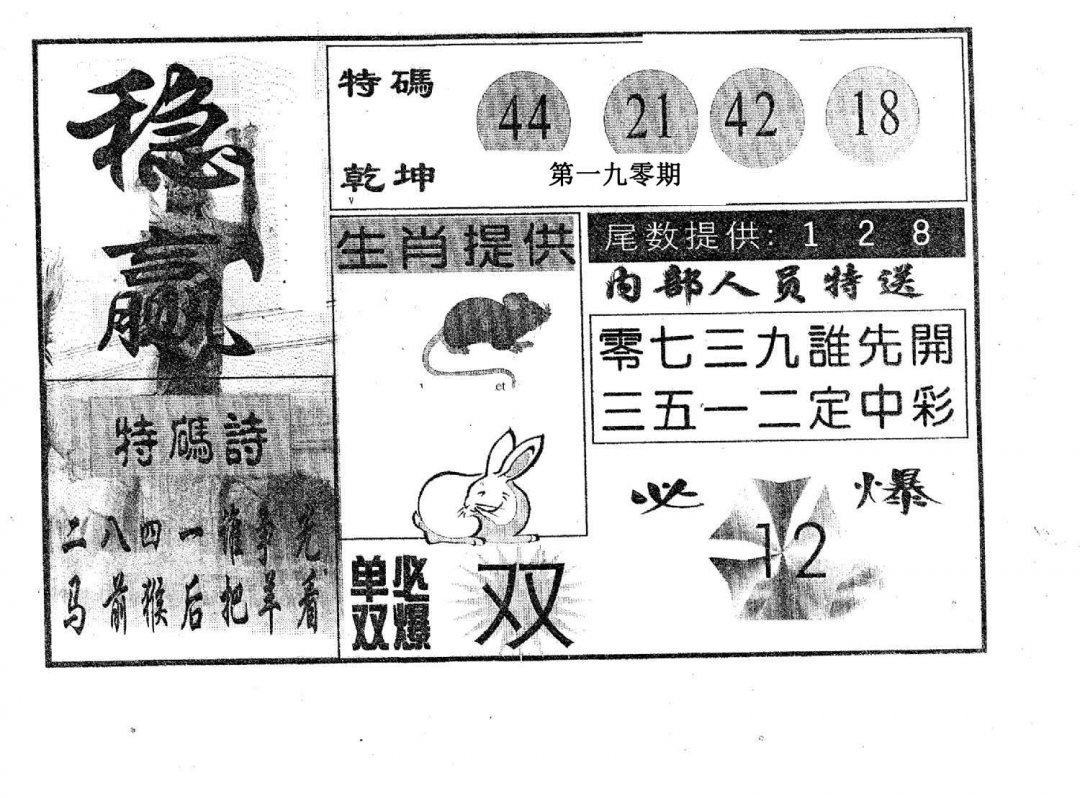 稳赢
特碼
44 21 42 18
乾坤
第一九零期
生肖提供
尾数提供: 1 2 8
内部人员特送
零七三九誰先開
三五一二定中彩
特碼詩
二八四一谁争光
马前猴后把羊看
必爆
12
单双必爆
双